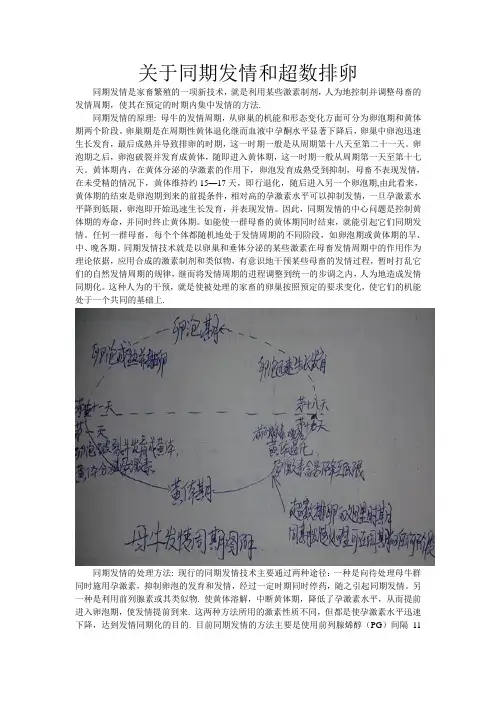 关于同期发情和超数排卵
同期发情是家畜繁殖的一项新技术，就是利用某些激素制剂，人为地控制并调整母畜的
发情周期，使其在预定的时期内集中发情的方法.
同期发情的原理: 母牛的发情周期，从卵巢的机能和形态变化方面可分为卵泡期和黄体
期两个阶段。卵巢期是在周期性黄体退化继而血液中孕酮水平显著下降后，卵巢中卵泡迅速
生长发育，最后成熟并导致排卵的时期，这一时期一般是从周期第十八天至第二十一天。卵
泡期之后，卵泡破裂并发育成黄体，随即进入黄体期，这一时期一般从周期第一天至第十七
天。黄体期内，在黄体分泌的孕激素的作用下，卵泡发育成熟受到抑制，母畜不表现发情，
在未受精的情况下，黄体维持约 15—17 天，即行退化，随后进入另一个卵泡期,由此看来，
黄体期的结束是卵泡期到来的前提条件，相对高的孕激素水平可以抑制发情，一旦孕激素水
平降到低限，卵泡即开始迅速生长发育，并表现发情。因此，同期发情的中心问题是控制黄
体期的寿命，并同时终止黄体期。如能使一群母畜的黄体期同时结束，就能引起它们同期发
情。任何一群母畜，每个个体都随机地处于发情周期的不同阶段，如卵泡期或黄体期的早、
中、晚各期。同期发情技术就是以卵巢和垂体分泌的某些激素在母畜发情周期中的作用作为
理论依据，应用合成的激素制剂和类似物，有意识地干预某些母畜的发情过程，暂时打乱它
们的自然发情周期的规律，继而将发情周期的进程调整到统一的步调之内，人为地造成发情
同期化。这种人为的干预，就是使被处理的家畜的卵巢按照预定的要求变化，使它们的机能
处于一个共同的基础上.
卵泡期
卵泡成熟并排卵
卵泡迅速生长发育
第二十一天
第十八天
第一天
第十七天
黄体退化
黄体期
母牛发情周期图解.
同期发情的处理方法: 现行的同期发情技术主要通过两种途径：一种是向待处理母牛群
同时施用孕激素，抑制卵泡的发育和发情，经过一定时期同时停药，随之引起同期发情。另
一种是利用前列腺素或其类似物. 使黄体溶解，中断黄体期，降低了孕激素水平，从而提前
进入卵泡期，使发情提前到来. 这两种方法所用的激素性质不同，但都是使孕激素水平迅速
下降，达到发情同期化的目的. 目前同期发情的方法主要是使用前列腺烯醇（PG）间隔 11